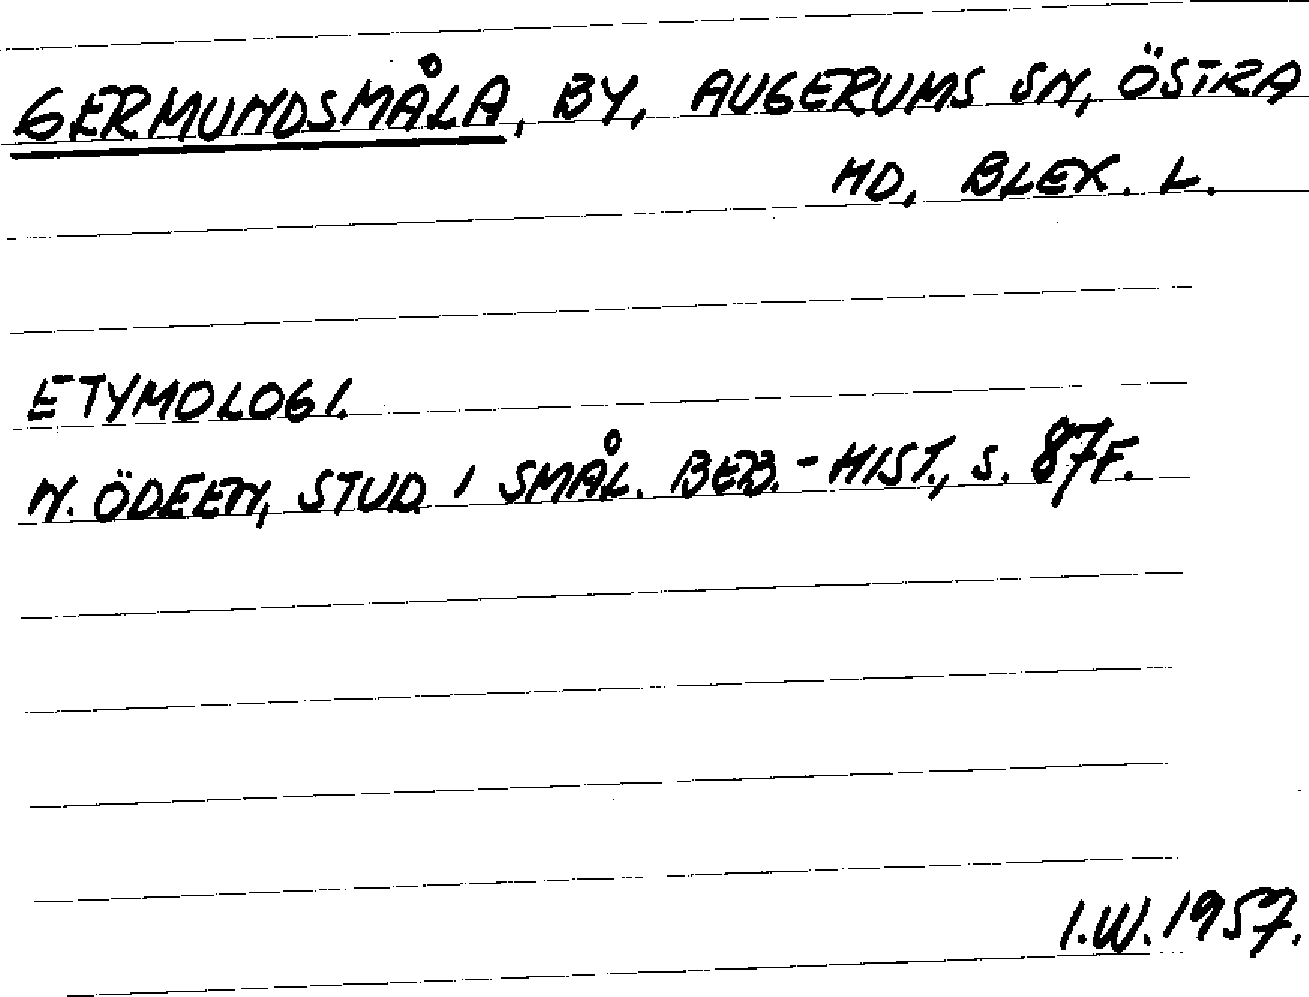 GERMUNDSMÅLA, BY, AUGERUMS SN, ÖSTRA
HD, BLEK. L.
ETYMOLOGI.
N. ÖDEEN, STUD. I SMÅL. BEB.-HIST., S. 87F.
I.W. 1957.